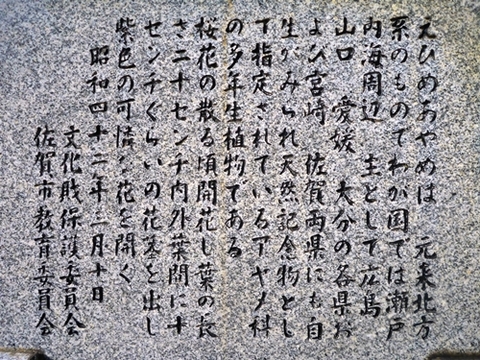 えひめあやめは 元来北方
系のものでわが国では瀬戸
内海周辺 主として広島
山口 愛媛 大分の各県お
よび宮崎 佐賀両県にも自
生がみられ天然記念物とし
て指定されているアヤメ科
の多年生植物である
桜花の散る頃開花し葉の長
さ二十センチ内外葉間に十
センチぐらいの花茎を出し
紫色の可憐な花を開く
昭和四十二年三月十日
文化財保護委員会
佐賀市教育委員会